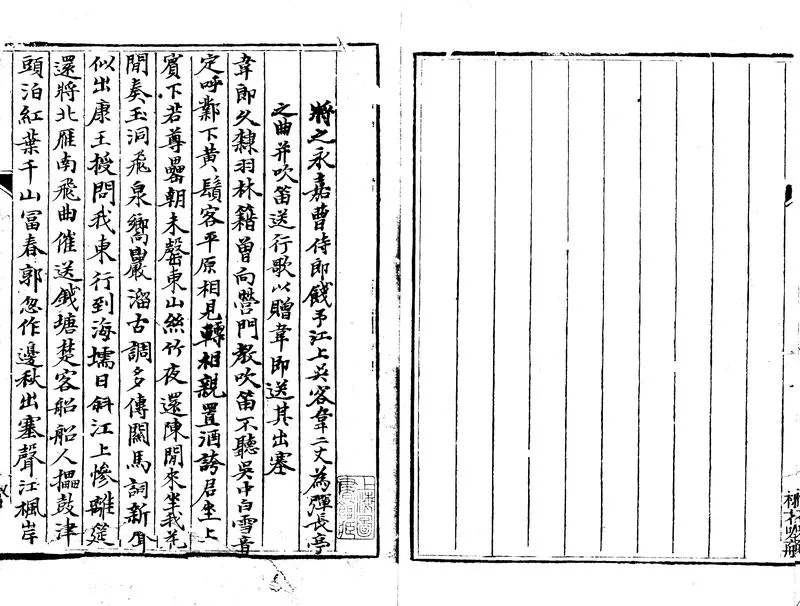 將之永嘉曹侍郎餞予江上吳客韋二丈為彈長亭
之曲并吹笛送行歌以贈韋郎送其出塞
韋郎久隸羽林籍曾向營門教吹笛不聽吳中白雪音
定呼鄴下黃鬚客平原相見轉相親置酒誇君坐上
賓下若尊罍朝未罄東山絲竹夜還陳閒來坐我花
間奏玉洞飛泉嚮巖溜古調多傳關馬詞新聲
似出康王授問我東行到海壖日斜江上慘離筵
還將北雁南飛曲催送錢塘楚客船船人擂鼓津
頭泊紅葉千山富春郭忽作邊秋出塞聲江楓岸
上海圖
書館藏